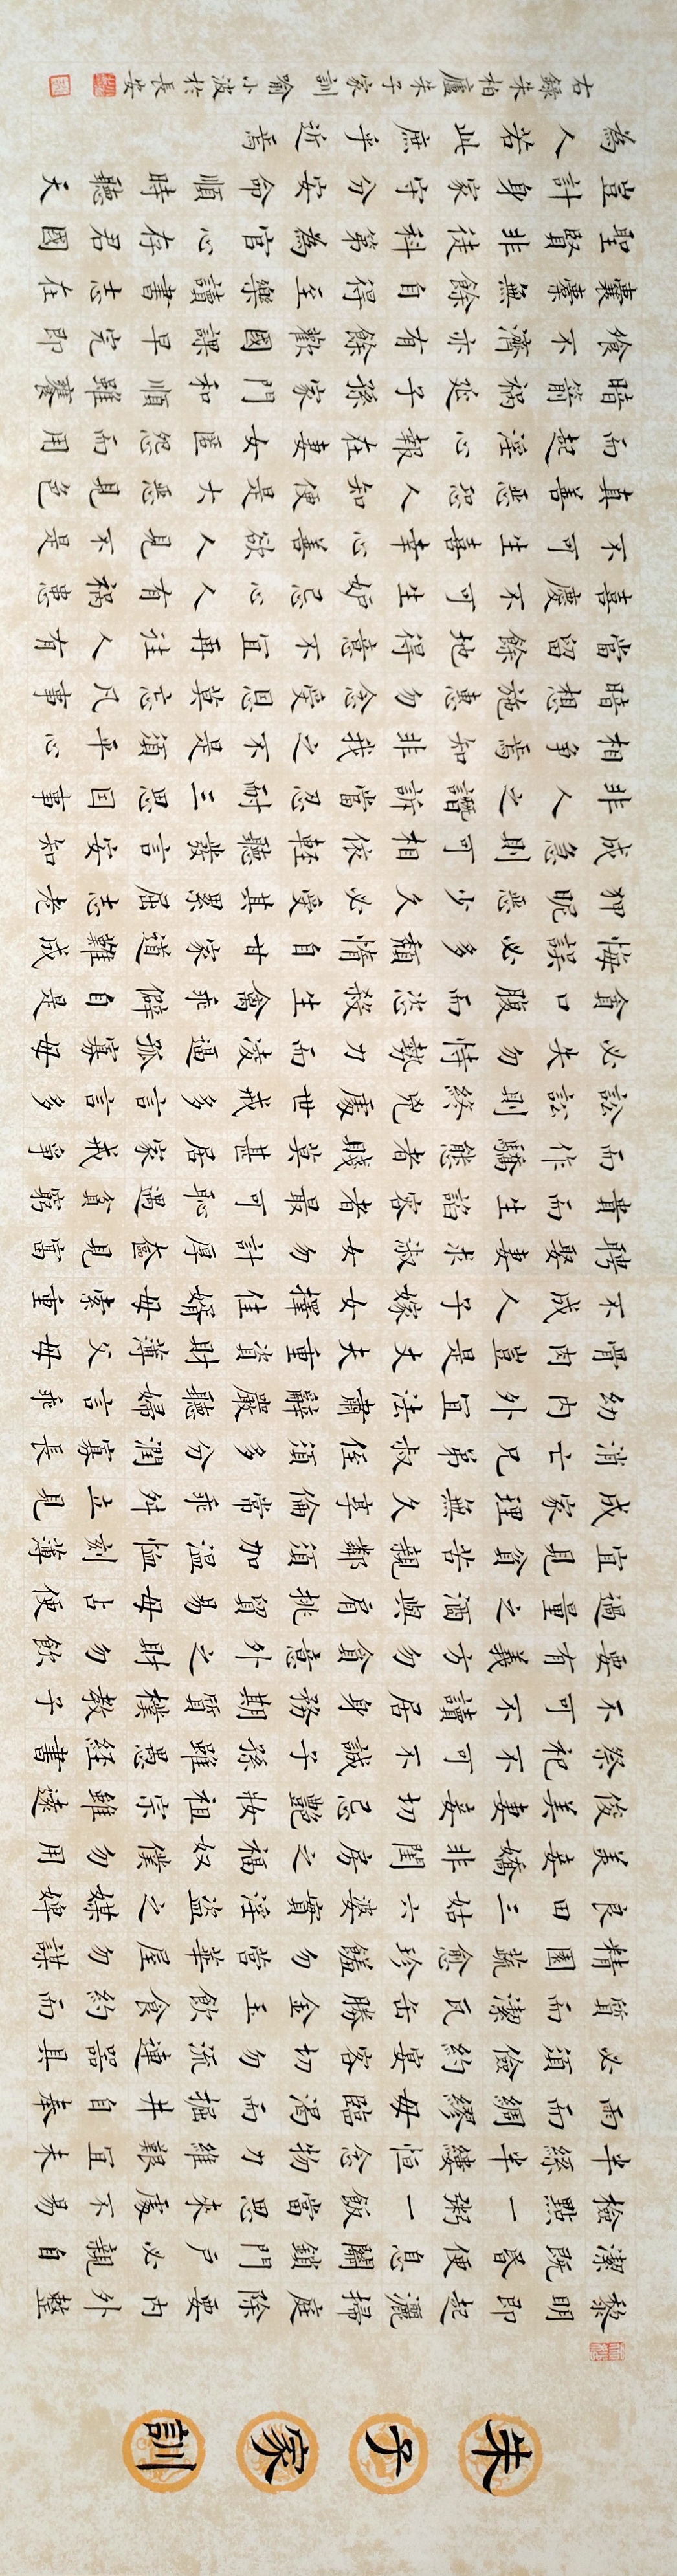 朱子家訓
黎明即起灑掃庭除要內外整
潔既昏便息關鎖門戶必親自
檢點一粥一飯當思來處不易
半絲半縷恒念物力維艱宜未
雨而綢繆毋臨渴而掘井自奉
必須儉約宴客切勿流連器具
質而潔瓦缶勝金玉飲食約而
精園蔬愈珍饈勿營華屋勿謀
良田三姑六婆實淫盜之媒婢
美妾嬌非閨房之福奴僕勿用
俊美妻妾切忌艷妝祖宗雖遠
祭祀不可不誠子孫雖愚經書
不可不讀居身務期質樸教子
要有義方勿貪意外之財勿飲
過量之酒與肩挑貿易毋占便
宜見貧苦親鄰須加溫恤刻薄
成家理無久享倫常乖舛立見
消亡兄弟叔侄須多分潤寡長
幼內外宜法肅辭嚴聽婦言乖
骨肉豈是丈夫重資財薄父母
不成人子嫁女擇佳婿毋索重
聘娶妻求淑女勿計厚奩見富
貴而生諂容者最可恥遇貧窮
而作驕態者賤莫甚居家戒爭
訟訟則終兇處世戒多言言多
必失勿恃勢力而凌逼孤寡毋
貪口腹而恣殺生禽乖僻自是
悔誤必多頹惰自甘家道難成
狎昵惡少久必受其累屈志老
成急則可相依輕聽發言安知
非人之譖訴當忍耐三思因事
相爭焉知非我之不是須平心
暗想施惠勿念受恩莫忘凡事
當留餘地得意不宜再往人有
喜慶不可生妒忌心人有禍患
不可生喜幸心善欲人見不是
真善惡恐人知便是大惡見色
而起淫心報在妻女匿怨而用
暗箭禍延子孫家門和順雖饔
飧不濟亦有餘歡國課早完即
囊橐無餘自得至樂讀書志在
聖賢非徒科第為官心存君國
豈計身家守分安命順時聽天
為人若此庶乎近焉
右錄朱柏廬朱子家訓 喻小波於長安